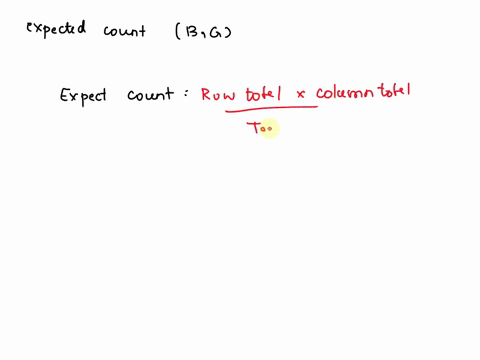 expected count (B,G)
Expect count : Row totel × column totel
Too